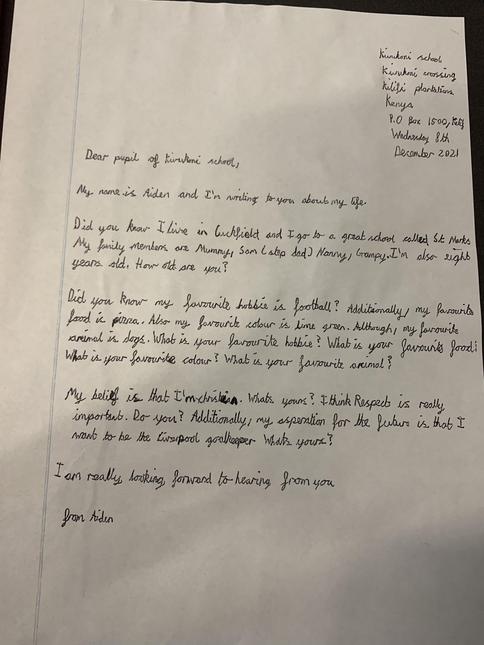 Kivukoni school
Kivukoni crossing
Kilifi plantations
Kenya
P.O Box 1500, Kilifi
Wednesday 8th
December 2021
Dear pupil of Kivukoni school,
My name is Aiden and I'm writing to you about my life.
Did you know I live in Cuckfield and I go to a great school called S.t Marks
My family members are Mummy, Sam (step dad) Nanny, Grampy. I'm also eight
years old. How old are you?
Did you know my favourite hobbie is football? Additionally, my favourite
food is pizza. Also my favourite colour is lime green. Although, my favourite
animal is dogs. What is your favourite hobbie? What is your favourite food?
What is your favourite colour? What is your favourite animel?
My belief is that I'm christian. Whats yours? I think Respects is really
important. Do you? Additionally, my asperation for the future is that I
want to be the Liverpool goalkeeper Whats yours?
I am really looking forward to hearing from you
from Aiden